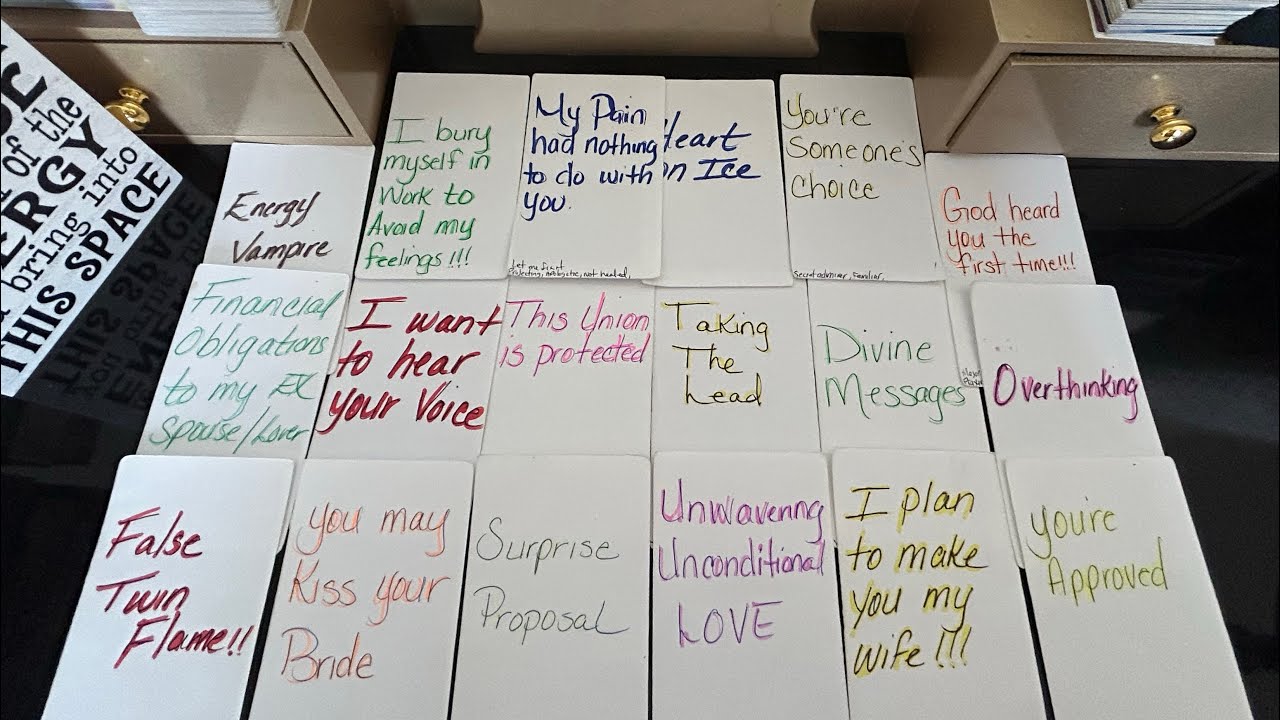 of the
ERGY
bring into
THIS SPACE
Energy
Vampire
I bury
myself in
Work to
Avoid my
feelings!!!
My Pain
had nothing
to do with
you.
Let me fix it
Heart
on Ice
You're
Someone's
Choice
Secret admirer, familiar,
God heard
you the
first time!!!
Financial
Obligations
to my EX
Spouse/Lover
I want
to hear
your Voice
This Union
is protected
Taking
The
Lead
Divine
Messages
Overthinking
False
Twin
Flame!!
you may
Kiss your
Bride
Surprise
Proposal
Unwavering
Unconditional
LOVE
I plan
to make
you my
wife!!!
you're
Approved